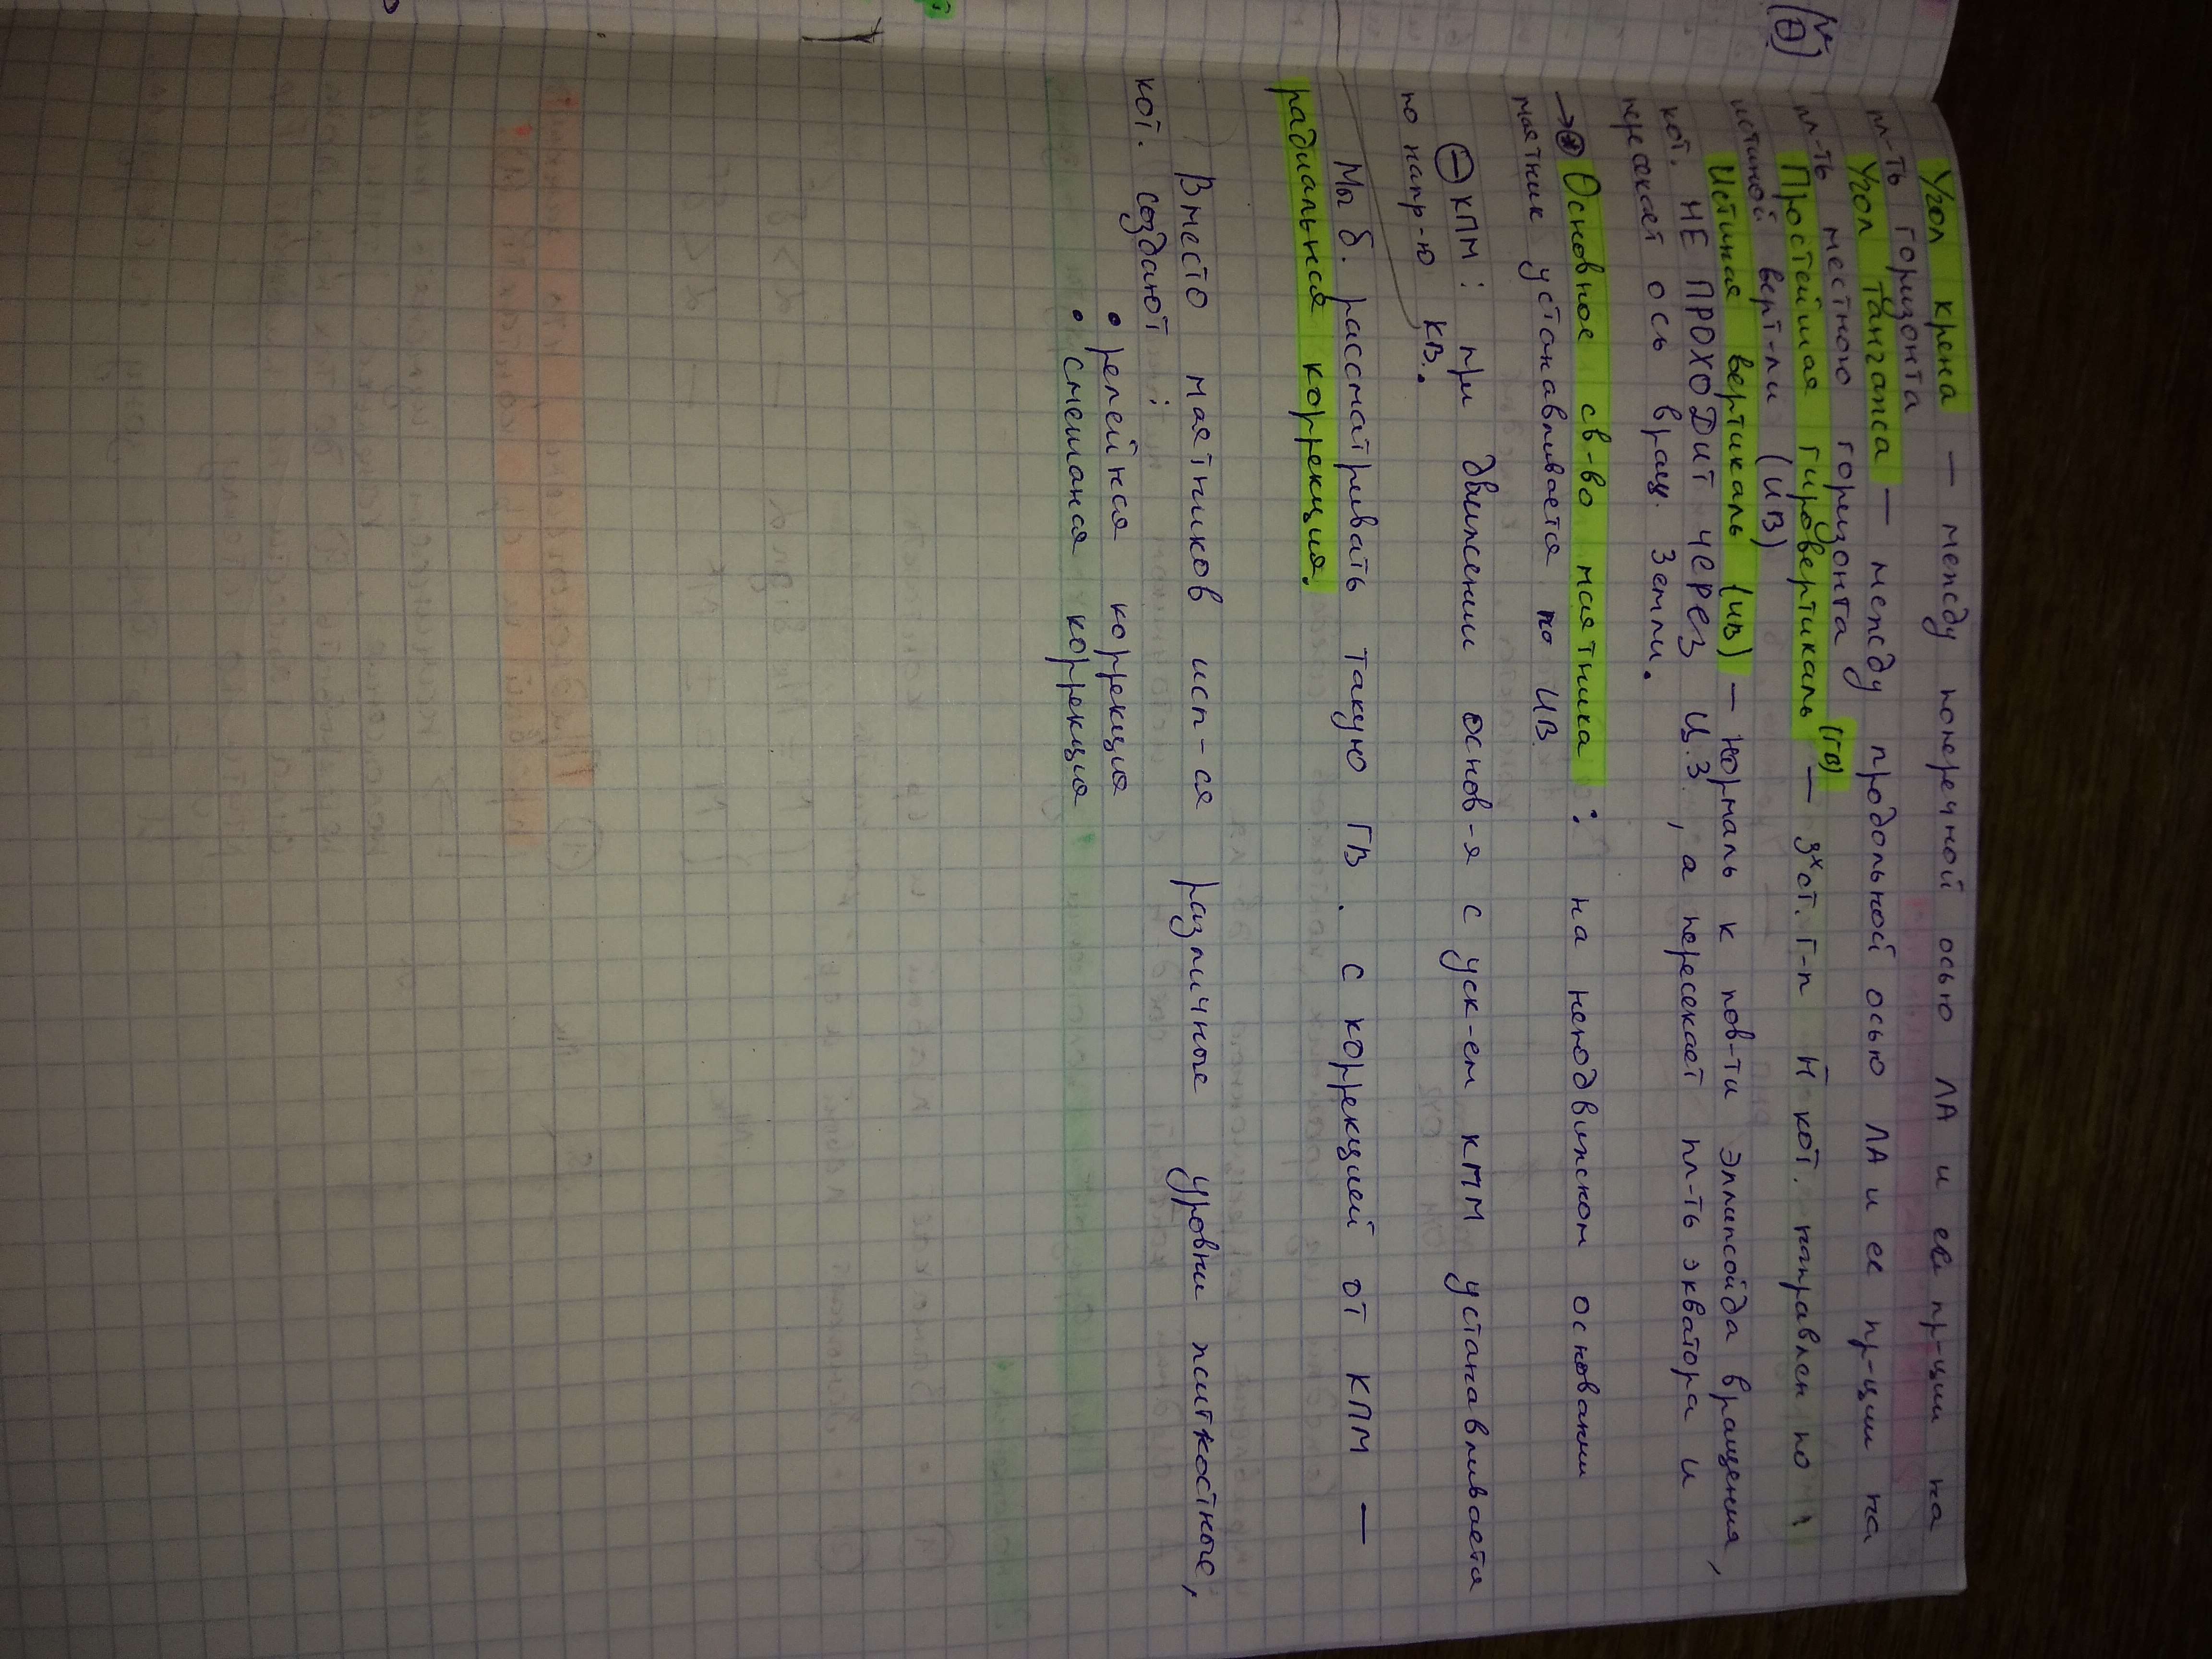 Угол крена — между поперечной осью ЛА и её пр-ции на
пл-ть горизонта
Угол тангажа — между продольной осью ЛА и ее пр-ции на
пл-ть местного горизонта
Простейшая гировертикаль (ГВ) — 3х ст. г-п H кот. направлен по
истиной верт-ли (ИВ)
Истиная вертикаль (ИВ) — нормаль к пов-ти эллипсоида вращения,
кот. НЕ ПРОХОДИТ ЧЕРЕЗ Ц.З, а пересекает пл-ть экватора и
пересекает ось вращ. Земли.
→ * Основное св-во маятника: на неподвижном основании
маятник устанавливается по ИВ.
⊖ КПМ: при движении основ-я с уск-ем КПМ устанавливается
по напр-ю КВ.
Мы б. рассматривать такую ГВ. с коррекцией от КПМ —
радиальная коррекция.
Вместо маятников исп-ся различные уровни житкостные,
кот. создают:
• релейная коррекция
• смешаная коррекция